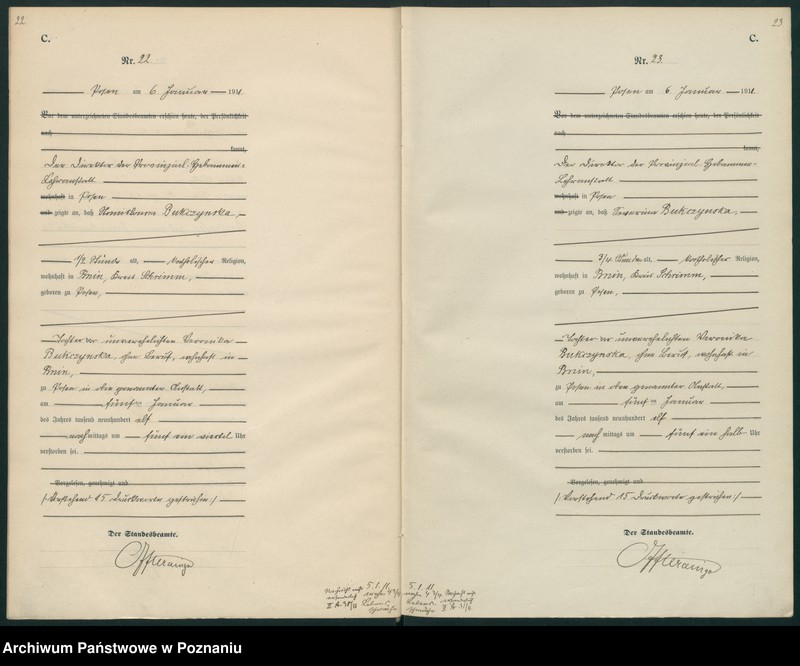 22
C.
Nr. 22
Posen am 6. Januar 1911.
Vor dem unterzeichneten Standesbeamten erschien heute, der Persönlichkeit
nach
kannt,
Der Direktor der Provinzial-Hebammen-
Lehranstalt
wohnhaft in Posen
und zeigte an, daß Bukczynska,
1/2 Stunde alt, katholischer Religion,
wohnhaft in Bnin, Kreis Schrimm,
geboren zu Posen,
Tochter der unverehelichten Veronika
Bukczynska, ohne Beruf, wohnhaft in
Bnin,
zu Posen in oben genannter Anstalt,
am fünften Januar
des Jahres tausend neunhundert elf
nachmittags um fünf ein viertel Uhr
verstorben sei.
Vorgelesen, genehmigt und
/: Vorstehend 15 Druckworte gestrichen :/
Der Standesbeamte.
5. 1. 11.
23
C.
Nr. 23.
Posen am 6. Januar 1911.
Vor dem unterzeichneten Standesbeamten erschien heute, der Persönlichkeit
nach
kannt,
Der Direktor der Provinzial-Hebammen-
Lehranstalt
wohnhaft in Posen
und zeigte an, daß Severina Bukczynska,
3/4 Stunde alt, katholischer Religion,
wohnhaft in Bnin, Kreis Schrimm,
geboren zu Posen,
Tochter der unverehelichten Veronika
Bukczynska, ohne Beruf, wohnhaft in
Bnin,
zu Posen in oben genannter Anstalt,
am fünften Januar
des Jahres tausend neunhundert elf
nachmittags um fünf ein halb Uhr
verstorben sei.
Vorgelesen, genehmigt und
/: Vorstehend 15 Druckworte gestrichen :/
Der Standesbeamte.
5. 1. 11.
Archiwum Państwowe w Poznaniu